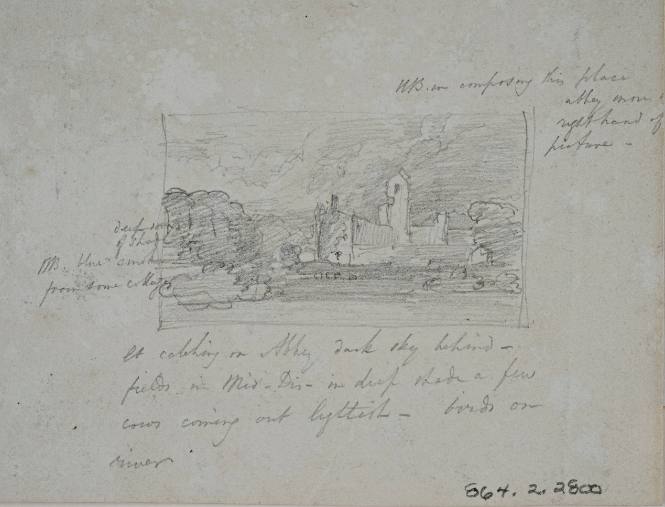 NB. in composing this place
abbey more
right hand of
picture -
deep
of shade
NB. blue smoke
from some cottage
Lt catching on Abbey dark sky behind -
fields in Mid - Dis - in deep shade a few
cows coming out lightish - birds on
river
864.2.2800